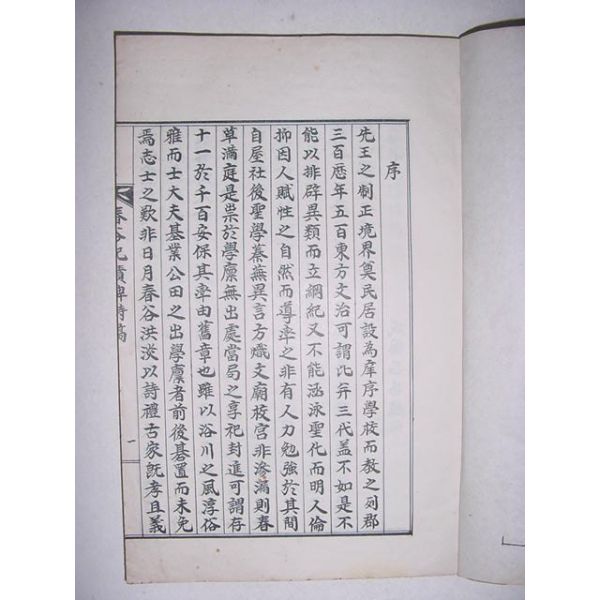 序
先王之制正境界奠民居設為庠序學校而教之列郡
三百歷年五百東方文治可謂比幷三代盖不如是不
能以排辟異類而立綱紀又不能涵泳聖化而明人倫
抑因人賦性之自然而導率之非有人力勉強於其間
自屋社後聖學蓁蕪異言方熾文廟校宮非滲漏則春
草满庭是祟於學廩無出處當局之享祀封進可謂存
十一於千百安保其率由舊章也雖以浴川之風淳俗
雅而士大夫基業公田之出學廩者前後碁置而未免
焉志士之歎非日月春谷洪淡以詩禮古家旣孝且義
春谷紀蹟碑詩稿
一